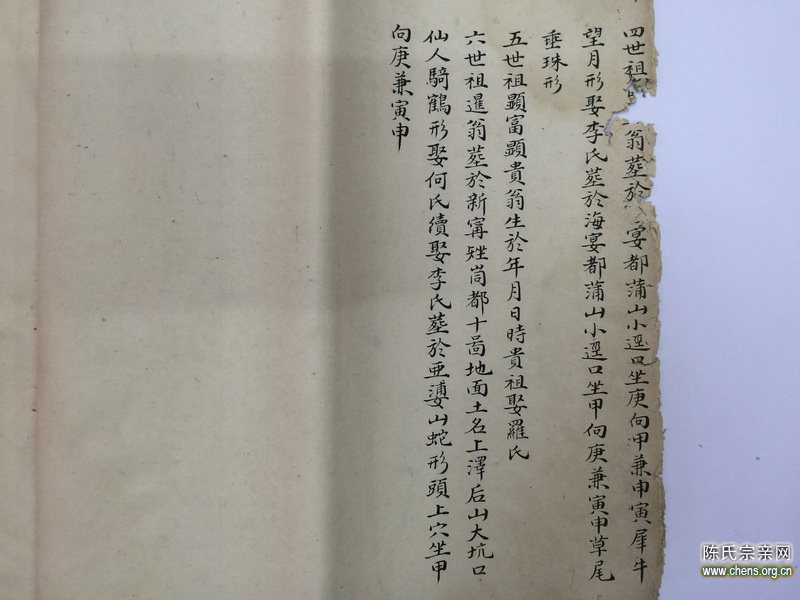 四世祖 翁塟於 宴都蒲山小逕口坐庚向甲兼申寅犀牛
望月形娶李氏塟於海宴都蒲山小逕口坐甲向庚兼寅申草尾
垂珠形
五世祖顯富顯貴翁生於年月日時貴祖娶羅氏
六世祖暹翁塟於新寗矬峝都十啚地面土名上澤后山大坑口
仙人騎鶴形娶何氏續娶李氏塟於亜婆山蛇形頭上穴坐甲
向庚兼寅申
陈氏宗亲网
www.chens.org.cn